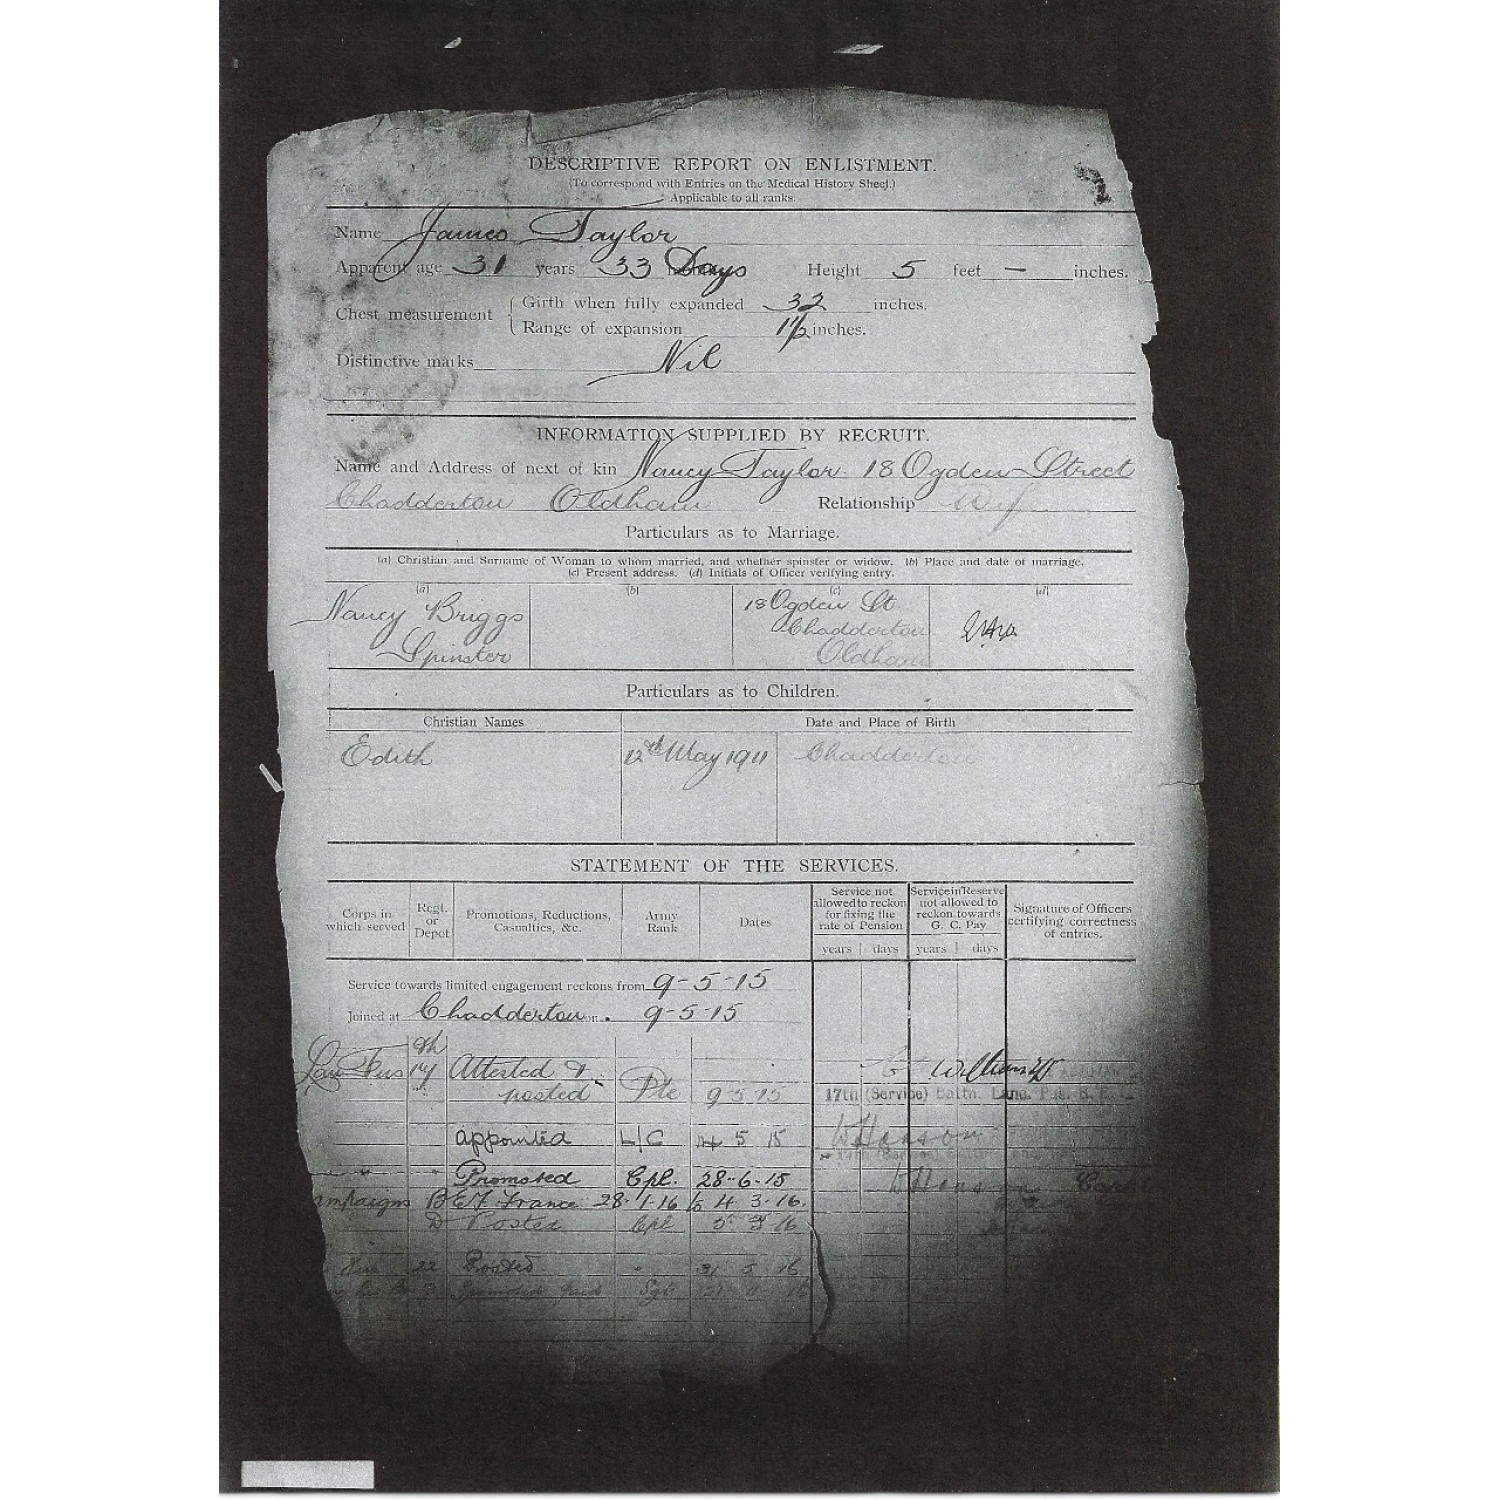 DESCRIPTIVE REPORT ON ENLISTMENT.
(To correspond with Entries on the Medical History Sheet.)
Applicable to all ranks.
Name James Taylor
Apparent age 31 years 33 Days Height 5 feet — inches.
Chest measurement { Girth when fully expanded 32 inches.
Range of expansion 1½ inches.
Distinctive marks Nil
INFORMATION SUPPLIED BY RECRUIT.
Name and Address of next of kin Nancy Taylor 18 Ogden Street
Chadderton Oldham Relationship Wife
Particulars as to Marriage.
(a) Christian and Surname of Woman to whom married, and whether spinster or widow. (b) Place and date of marriage.
(c) Present address. (d) Initials of Officer verifying entry.
(a) (b) (c) (d)
Nancy Briggs 18 Ogden St
Spinster Chadderton
Oldham
Particulars as to Children.
Christian Names Date and Place of Birth
Edith 12th May 1911 Chadderton
STATEMENT OF THE SERVICES.
Corps in which served Regt. or Depot Promotions, Reductions, Casualties, &c. Army Rank Dates Service not allowed to reckon for fixing the rate of Pension Service in Reserve not allowed to reckon towards G. C. Pay Signature of Officers certifying correctness of entries.
years days years days
Service towards limited engagement reckons from 9-5-15
Joined at Chadderton on 9-5-15
Lan Fus 17th Attested &
posted Pte 9 5 15 17th (Service) Battn. Lanc. Fus.
appointed L/C 5 15
" " Promoted Cpl. 28-6-15
BEF France 28-1-16 to 4 3-16.
D Posted Cpl 5 3 16
Fus 22 Posted " 31 5 16
Sgt